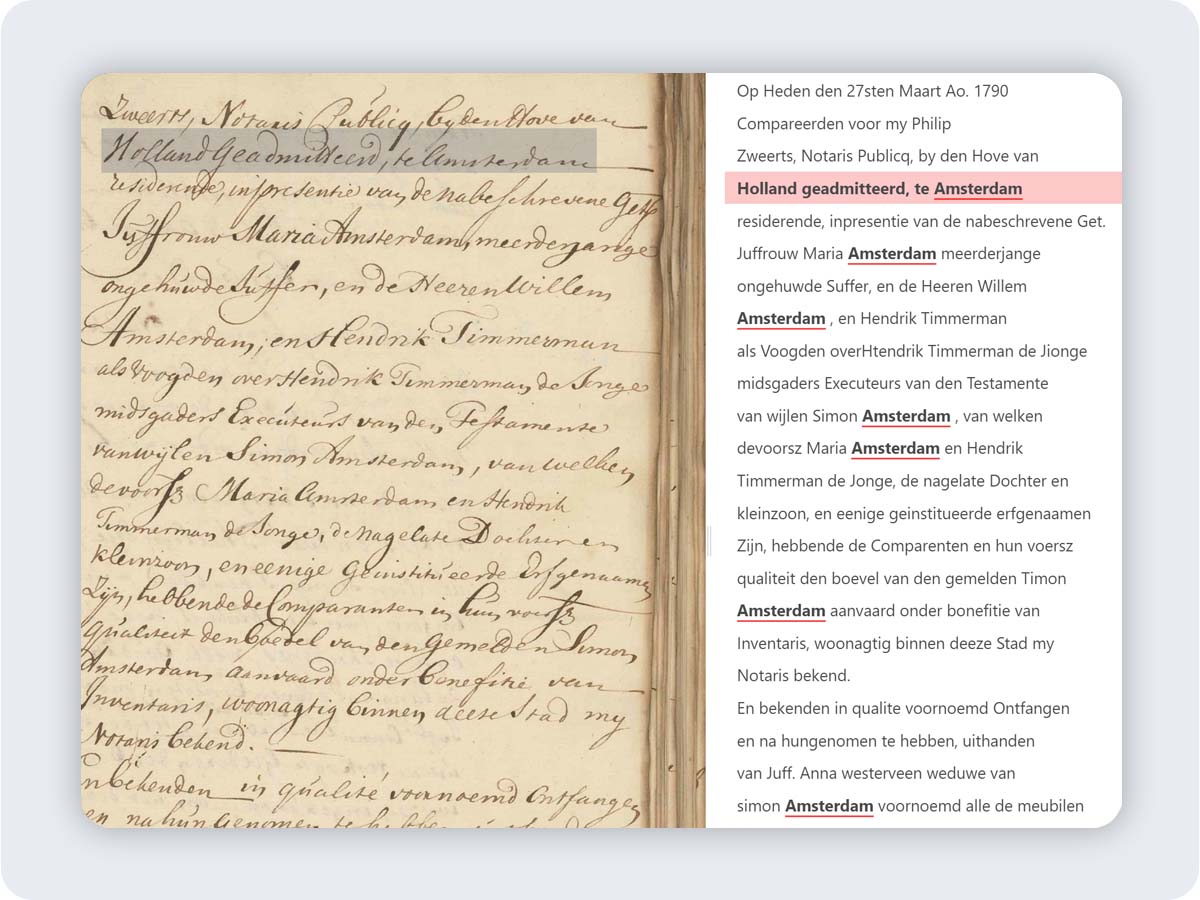 Zweerts, Notaris Publicq, by den Hove van
Holland Geadmitteerd, te Amsterdam
residerende, in presentie van de nabeschrevene Get.
Juffrouw Maria Amsterdam, meerderjange
ongehuwde Juffer, en de Heeren Willem
Amsterdam, en Hendrik Timmerman
als Voogden over Hendrik Timmerman de Jonge
midsgaders Executeurs van den Testamente
van wijlen Simon Amsterdam, van welken
devoorsz Maria Amsterdam en Hendrik
Timmerman de Jonge, de nagelate Dochter en
kleinzoon, en eenige Geinstitueerde Erfgenaamen
Zijn, hebbende de Comparanten in hun voorsz
qualiteit den boedel van den Gemelden Simon
Amsterdam aanvaard onder benefitie van
Inventaris, woonagtig binnen deeze Stad my
Notaris bekend.
En bekenden in qualité voornoemd Ontfangen
en na hun Genomen te hebben
Op Heden den 27sten Maart Ao. 1790
Compareerden voor my Philip
Zweerts, Notaris Publicq, by den Hove van
Holland geadmitteerd, te Amsterdam
residerende, inpresentie van de nabeschrevene Get.
Juffrouw Maria Amsterdam meerderjange
ongehuwde Suffer, en de Heeren Willem
Amsterdam , en Hendrik Timmerman
als Voogden overHtendrik Timmerman de Jionge
midsgaders Executeurs van den Testamente
van wijlen Simon Amsterdam , van welken
devoorsz Maria Amsterdam en Hendrik
Timmerman de Jonge, de nagelate Dochter en
kleinzoon, en eenige geinstitueerde erfgenaamen
Zijn, hebbende de Comparenten en hun voersz
qualiteit den boevel van den gemelden Timon
Amsterdam aanvaard onder bonefitie van
Inventaris, woonagtig binnen deeze Stad my
Notaris bekend.
En bekenden in qualite voornoemd Ontfangen
en na hungenomen te hebben, uithanden
van Juff. Anna westerveen weduwe van
simon Amsterdam voornoemd alle de meubilen